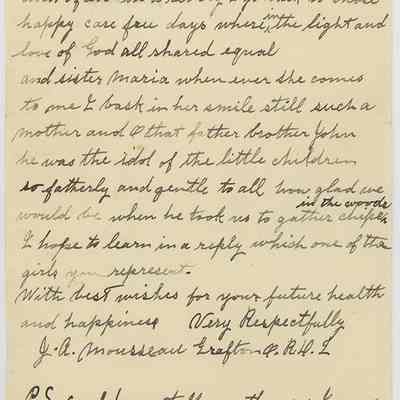 happy care free days where in the light and
love of God all shared equal
and sister Maria when ever she comes
to me I bask in her smile still such a
mother and O that father brother John
he was the idol of the little children
so fatherly and gentle to all how glad we
would be when he took us to gather chips in the woods
I hope to learn in a reply which one of the
girls you represent.
With best wishes for your future health
and happiness Very Respectfully
J. A. Mousseau Grafton